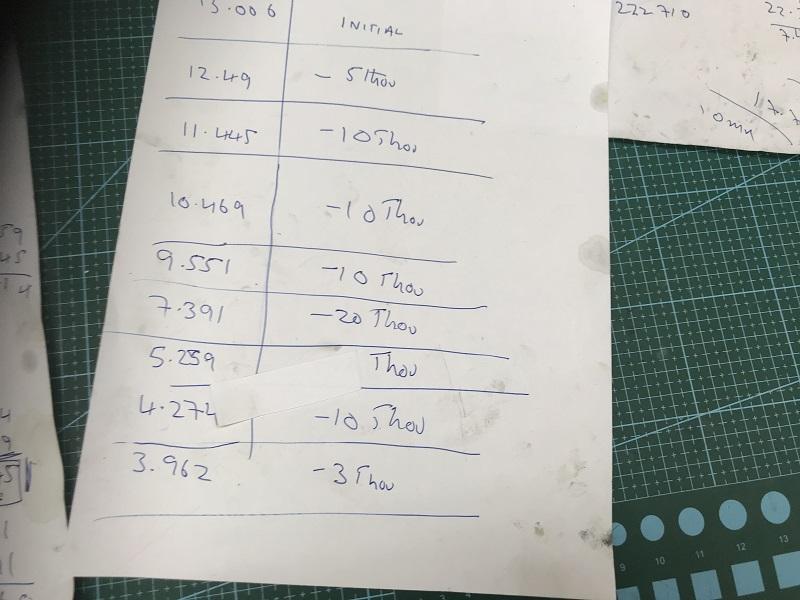 INITIAL
12.49 - 5 Thou
11.445 -10 Thou
10.469 -10 Thou
9.551 -10 Thou
7.391 -20 Thou
5.259 Thou
-10 Thou
3.962 -3 Thou
222710
10mm
9 10 11 12 13